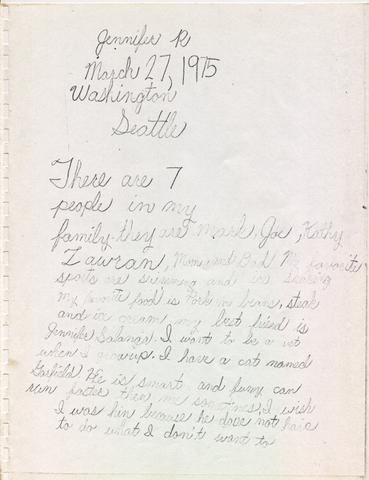 Jennifer R
March 27, 1975
Washington
Seattle
There are 7
people in my
family. they are Mark, Joe, Kathy
Lauran, Mom, and Dad My favorite
sports are swimming and ice skating
My favorite food is Pork in beans, steak
and ice cream my best friend is
Jennifer I want to be a vet
when I growup. I have a cat named
Garfield He is smart and funny can
run faster then me sometimes, I wish
I was him because he dose not have
to do what I don't want to